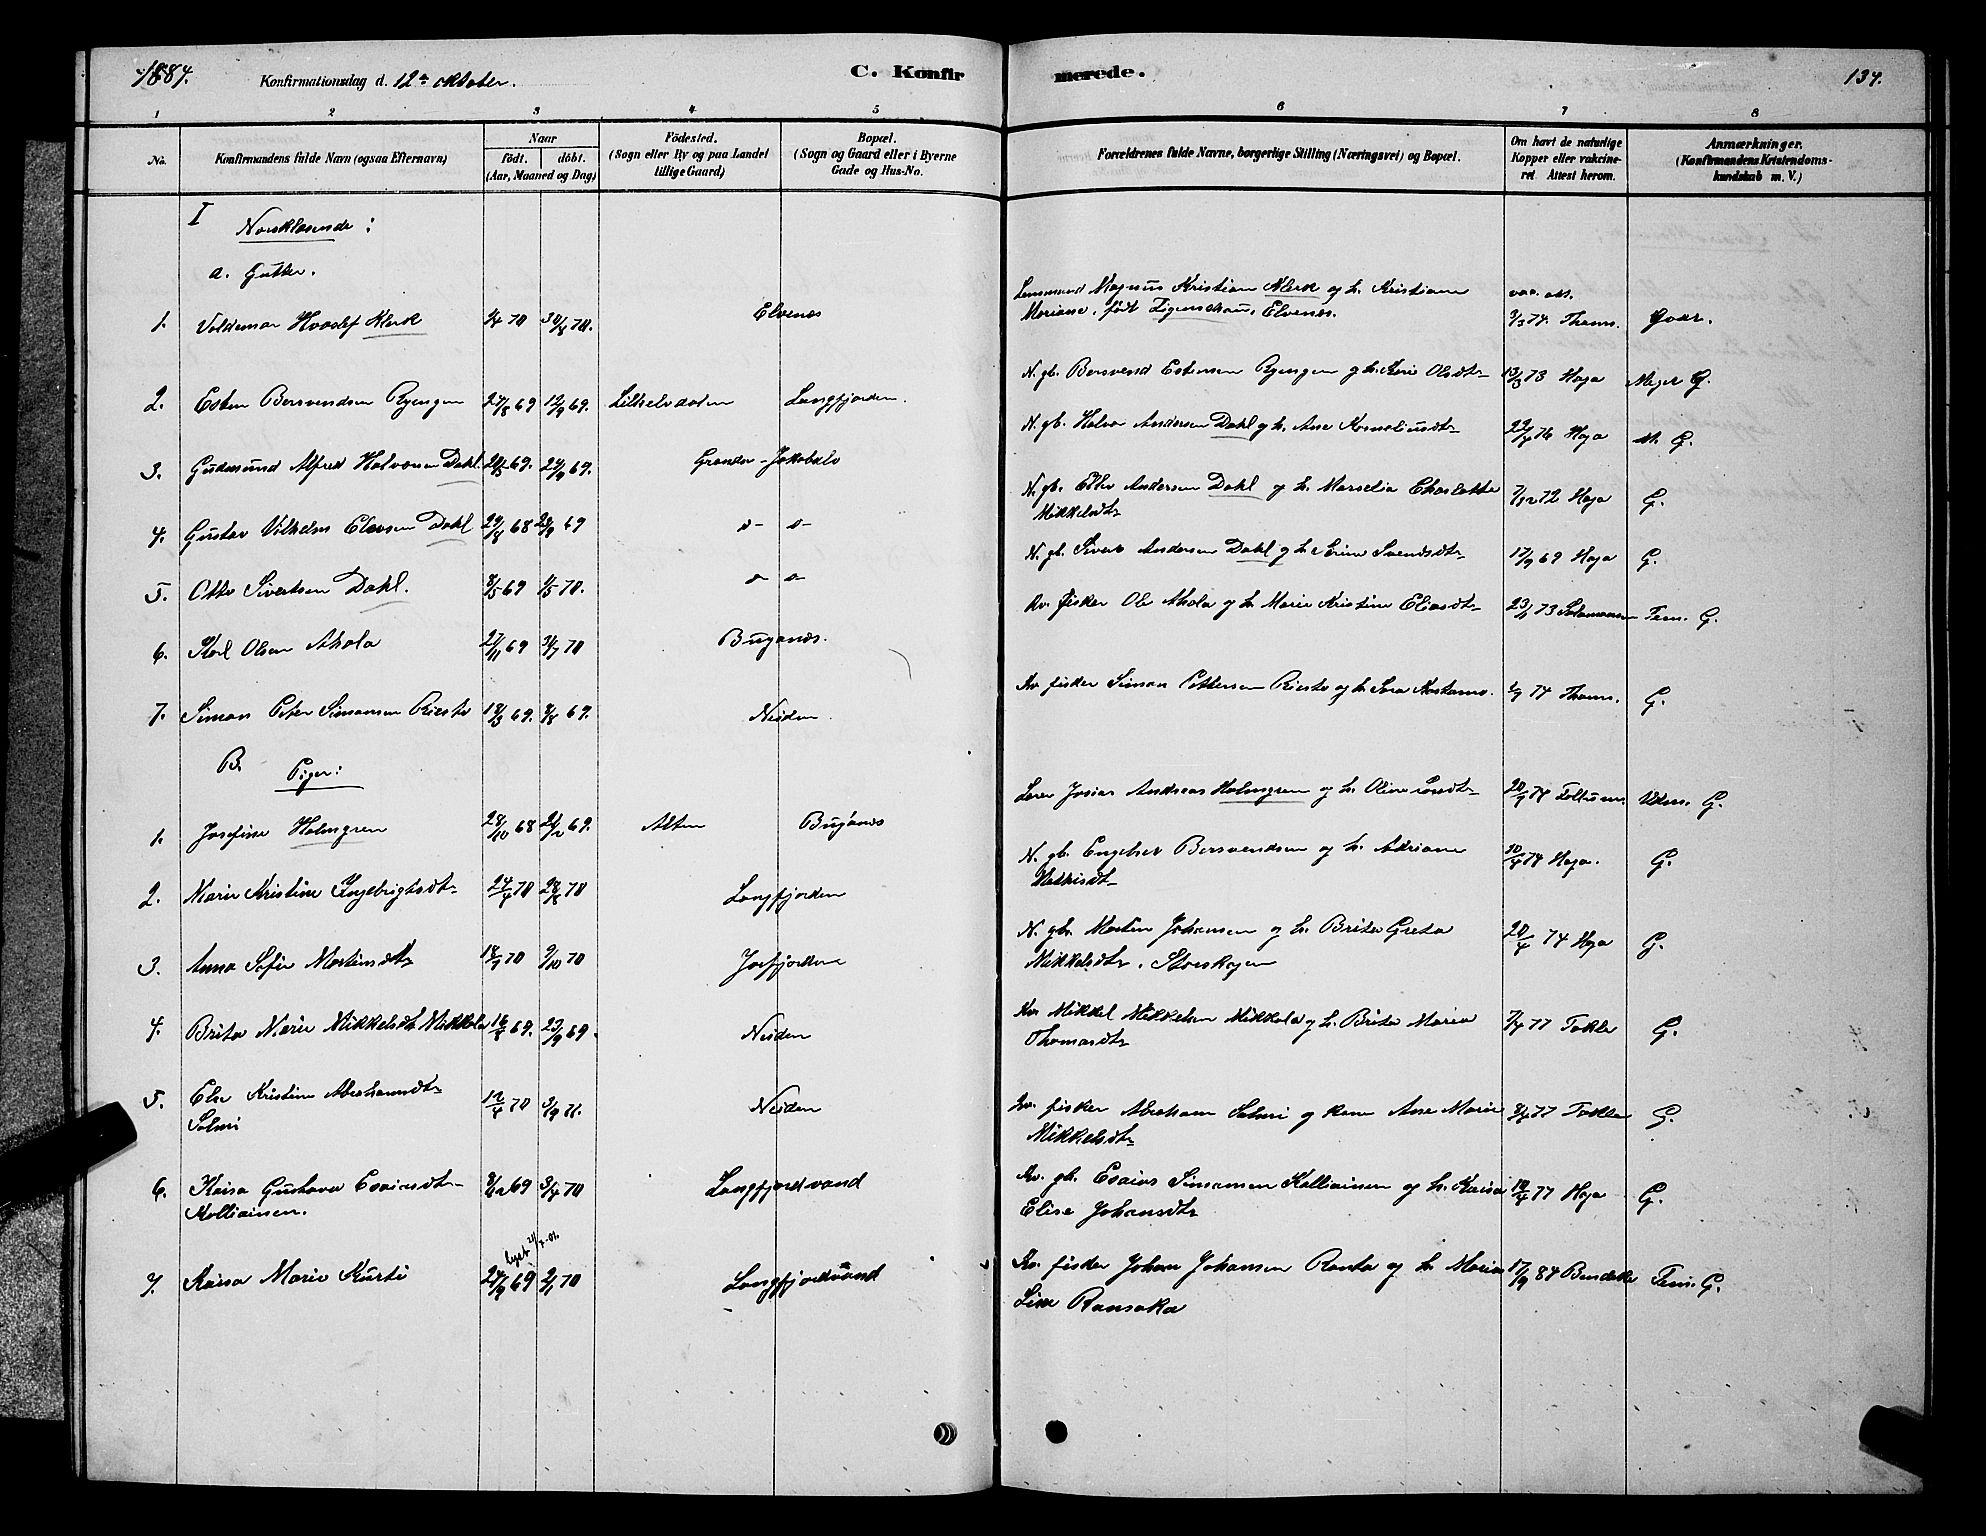 1884.
Konfirmationsdag d. 12te oktober.
C. Konfirmerede.
134.
1 2 3 4 5 6 7 8
No.
Konfirmandens fulde Navn (ogsaa Efternavn)
Naar
födt. döbt.
(Aar, Maaned og Dag)
Födested.
(Sogn eller By og paa Landet
tillige Gaard)
Bopæl.
(Sogn og Gaard eller i Byerne
Gade og Hus-No.
Forældrenes fulde Navne, borgerlige Stilling (Næringsvei) og Bopæl.
Om havt de naturlige
Kopper eller vakcine-
ret Attest herom.
Anmærkninger.
(Konfirmandens Kristendoms-
kundskab m. V.)
I
Norsklæsende:
a. Gutter.
1. Voldemar Klerk 70 70. Elvenes
Lensmand Magnus Kristian Klerk og h. Kristiane
Mariane, født Elvenes.
vac. att.
74. Thams. Godt.
2. Esten Bersvendsen Ryengen 24/8 69 12/9 69. Langfjorden.
N. gb. Bersvend Estensen Ryengen g h. Kari Olsdtr 13/3 73 Haga Meget G.
3. Gudmund Alfred Halvorsen Dahl. 69. 24/9 69. Jakobselv
N. gb. Halvor Andersen Dahl g h. Ane Korneliusdtr 22/4 76 Haga M. G.
4. Gustav Vilhelm Dahl 29/8 68 69 o- o-
N. gb. Andersen Dahl og h. Marselia Charlotte
Mikkelsdtr
7/12 72 Haga G.
5. Otto Sivertsen Dahl. 69 70. o- o-
N. gb. Sivert Andersen Dahl g h. Svendsdtr 17/9 69 Haga G.
6. Karl Olsen Ahola 27/11 69 70 Bugønes.
Kv. fisker Ole Ahola og h. Marie Kristine Eliasdtr 73 Tem. G.
7. Simon Peter Simonsen Riesto 18/3 69. 8/8 69. Neiden.
Kv. fisker Simon Pettersen Riesto og h. Sara 74 Thams. G.
B. Piger:
1. Josefine Holmgren 28/10 68 69. Alten Bugønes
Lærer Josias Andreas Holmgren og h. Oline 20/9 74 Udm. G.
2. Marie Kristine Ingebrigtsdtr 24/4 70 28/8 70 Langfjorden
N. gb. Engebret Bersvendsen og h. Adriane
Mathisdtr
10/4 74 Haga. G.
3. Anna Sofie Mortensdtr 18/7 70 9/10 70 Jarfjorden
N. gb. Morten Johansen og h. Brita Greta
Mikkelsdtr. Storskogen
20/4 74 Haga G.
4. Brita Marie Mikkelsdtr Mikkola 69. 23/9 69. Neiden
Kv. Mikkel Mikkelsen Mikkola og h. Brita Maria
Thomasdtr
7/4 77 Tokle G.
5. Else Kristine Abrahamsdtr
Salmi
12/4 70 3/9 71. Neiden
Kv. fisker Abraham Salmi og kone Ane Marie
Mikkelsdtr
77 Tokle G.
6. Kaisa Gustava Esaiasdtr
Kolliainen.
69 3/4 70 Langfjordvand
Kv. gb. Esaias Simonsen Kolliainen og h. Kaisa
Elise Johansdtr
77 Haga G.
7. Kaisa Marie Kurti 69 2/1 70 Langfjordvand
Kv. fisker Johan Johansen Ranta og h. Maria
Lisa Ransaka
17/9 84 Tem. G.